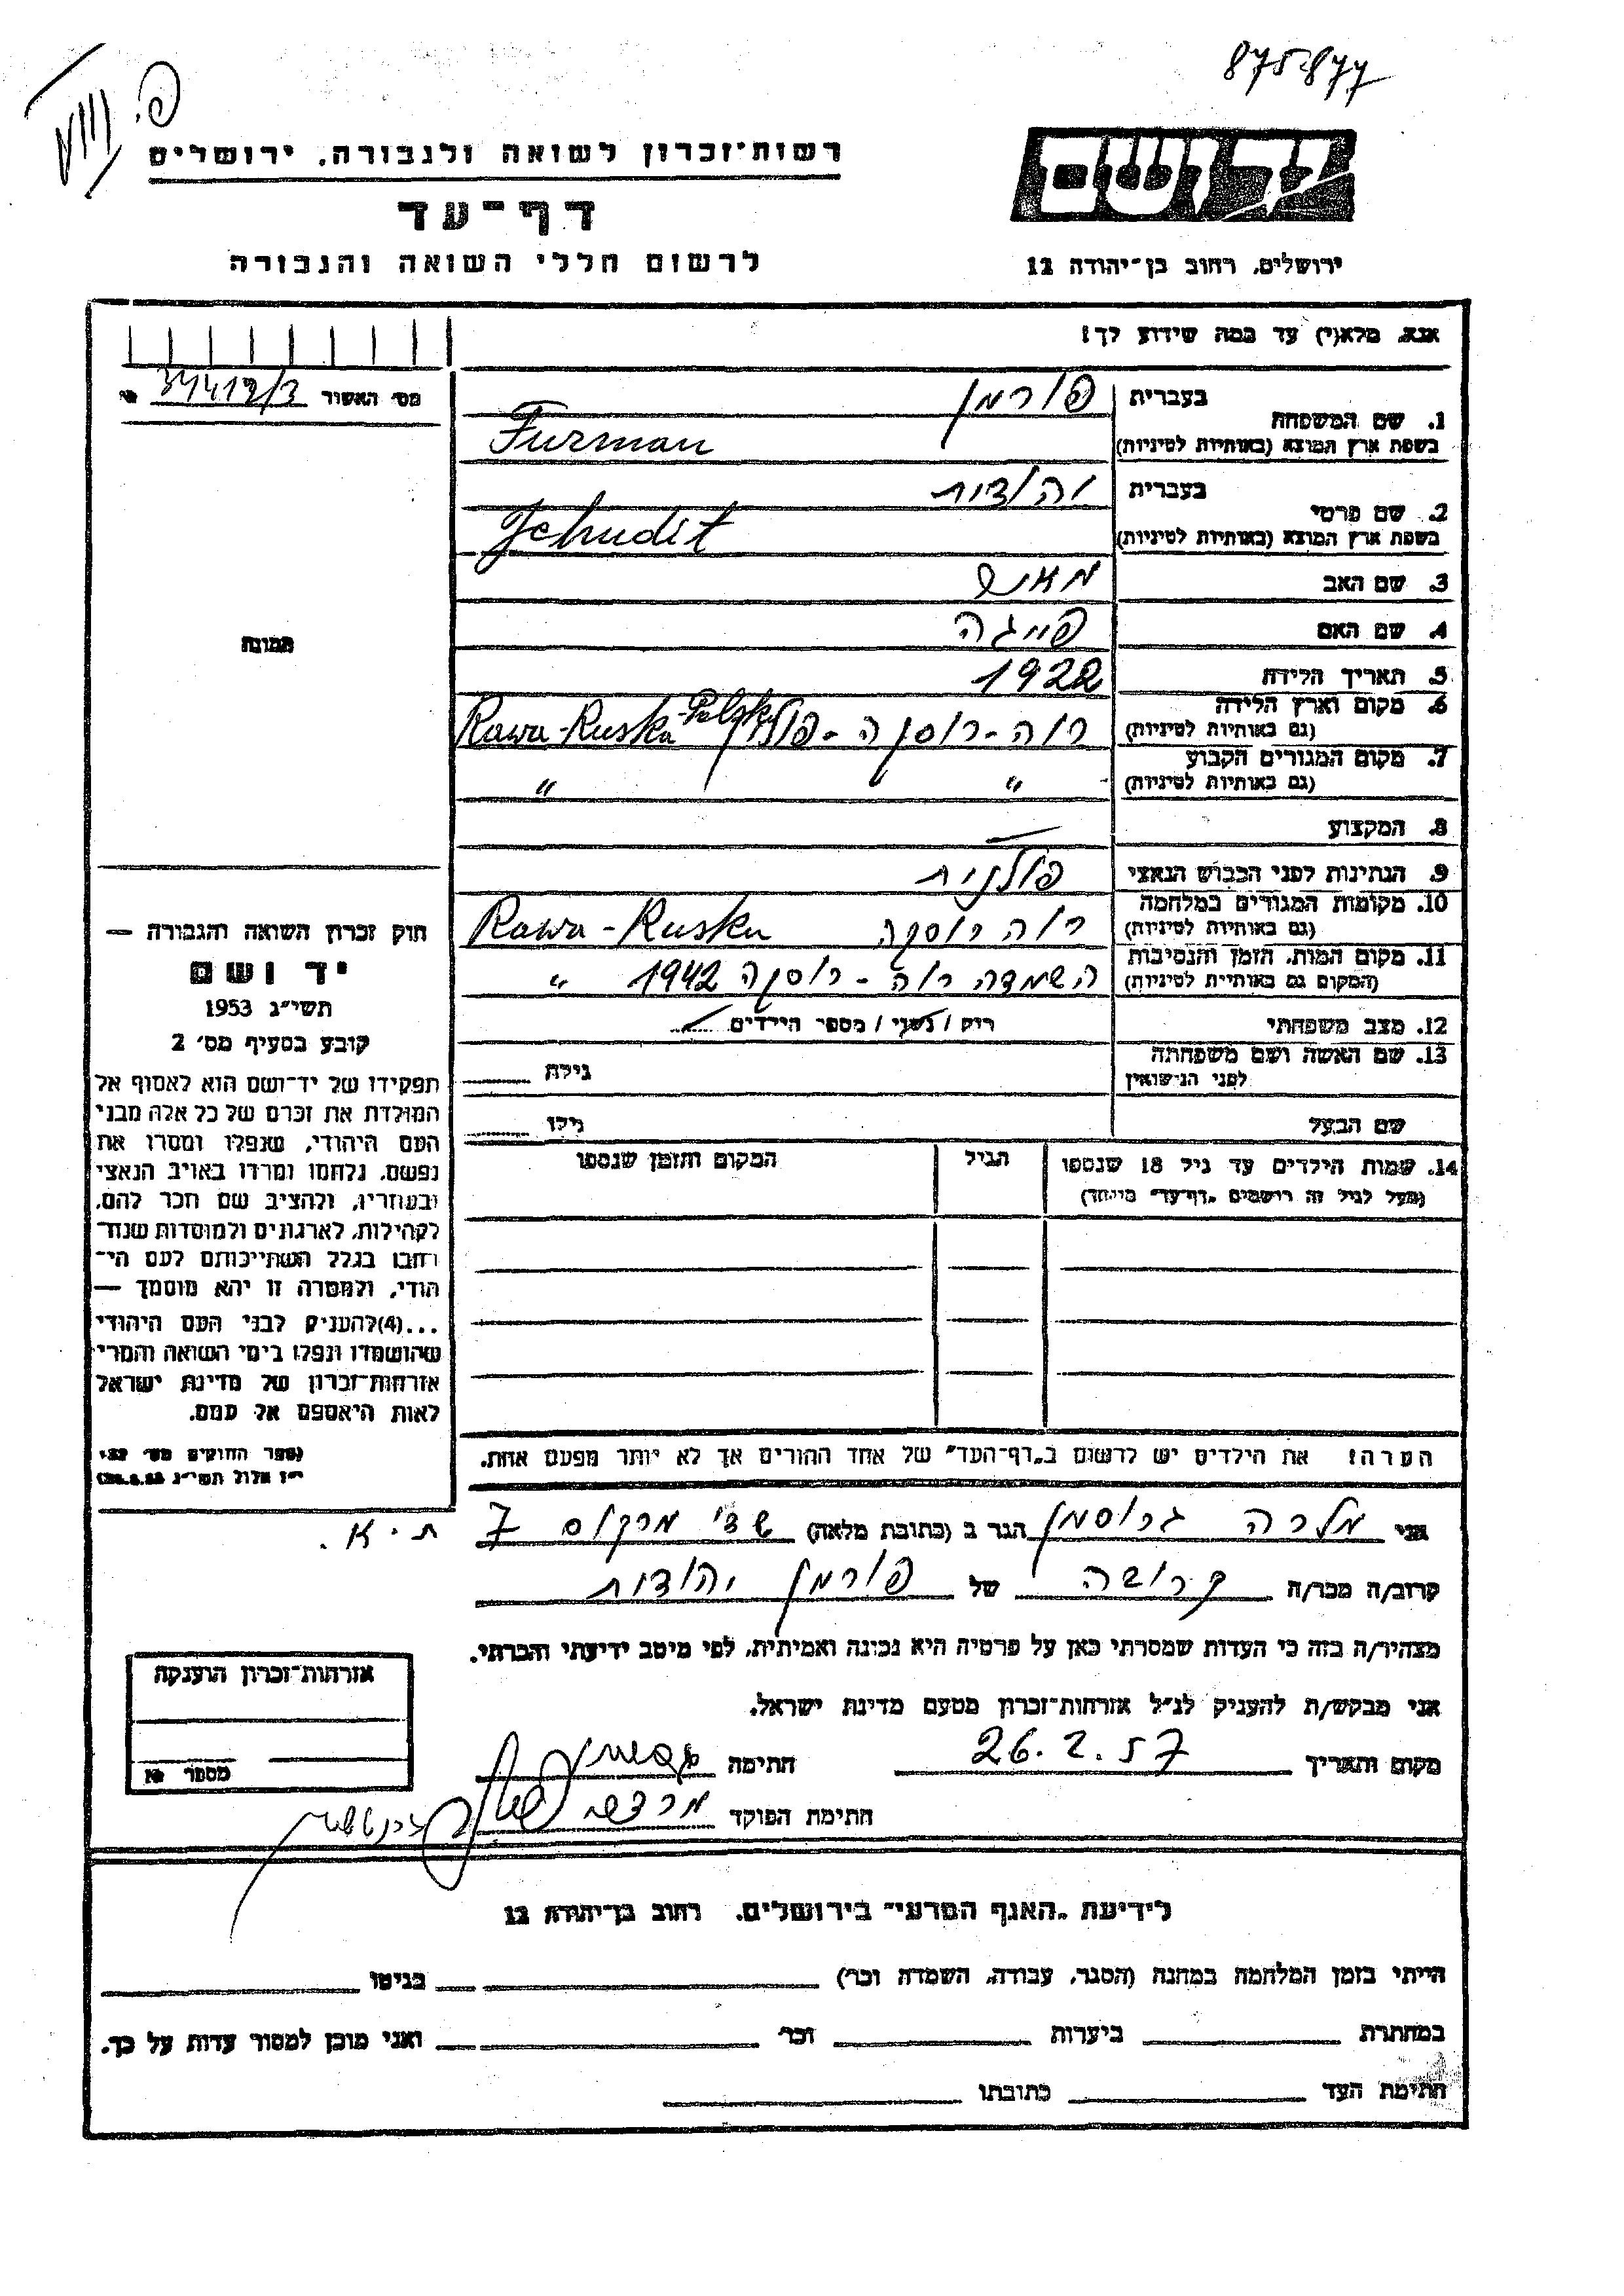 875-877
פ.
רשות־זכרון לשואה ולגבורה, ירושלים
דף־עד
לרשום חללי השואה והגבורה
יד ושם
ירושלים, רחוב בן־יהודה 12
אנא, מלא(י) עד כמה שידוע לך!
מס׳ האשור 34412/3 №
תמונה
1. שם המשפחה
בעברית פורמן
בשפת ארץ המוצא (באותיות לטיניות) Furman
2. שם פרטי
בעברית יהודית
בשפת ארץ המוצא (באותיות לטיניות) Jehudit
3. שם האב
4. שם האם פייגה
5. תאריך הלידה 1922
6. מקום וארץ הלידה
(גם באותיות לטיניות) רוה-רוסקה - Rawa-Ruska-Polska
7. מקום המגורים הקבוע
(גם באותיות לטיניות) " "
8. המקצוע —
9. הנתינות לפני הכבוש הנאצי פולנית
10. מקומות המגורים במלחמה
(גם באותיות לטיניות) רוה רוסקה Rawa-Ruska
11. מקום המות, הזמן והנסיבות
(המקום גם באותיות לטיניות) השמדה רוה-רוסקה 1942 "
12. מצב משפחתי רווק / נשוי / מספר הילדים
13. שם האשה ושם משפחתה
לפני הנישואין גילה
שם הבעל גילו
14. שמות הילדים עד גיל 18 שנספו הגיל המקום והזמן שנספו
(מעל לגיל זה רושמים „דף־עד״ מיוחד)
חוק זכרון השואה והגבורה —
יד ושם
תשי״ג 1953
קובע בסעיף מס׳ 2
תפקידו של יד־ושם הוא לאסוף אל
המולדת את זכרם של כל אלה מבני
העם היהודי, שנפלו ומסרו את
נפשם, נלחמו ומרדו באויב הנאצי
ובעוזריו, ולהציב שם וזכר להם,
לקהילות, לארגונים ולמוסדות שנח־
רבו בגלל השתייכותם לעם הי־
הודי, ולמטרה זו יהא מוסמך —
...(4)להעניק לבני העם היהודי
שהושמדו ונפלו בימי השואה והמרי
אזרחות־זכרון של מדינת ישראל
לאות היאספם אל עמם.
(ספר החוקים מס׳ 132,
י״ז אלול תשי״ג 28.8.53)
הערה! את הילדים יש לרשום ב„דף־העד״ של אחד ההורים אך לא יותר מפעם אחת.
אני מלכה גרוסמן הגר ב (כתובת מלאה) שד׳ מרקוס 7 ת.א.
קרוב/ה מכר/ה קרובה של פורמן יהודית
מצהיר/ה בזה כי העדות שמסרתי כאן על פרטיה היא נכונה ואמיתית, לפי מיטב ידיעתי והכרתי.
אני מבקש/ת להעניק לנ״ל אזרחות־זכרון מטעם מדינת ישראל.
מקום ותאריך 26.2.57 חתימה
חתימת הפוקד מרדכי
אזרחות־זכרון הוענקה
מספר №
לידיעת „האגף המדעי״ בירושלים, רחוב בן־יהודה 12
הייתי בזמן המלחמה במחנה (הסגר, עבודה, השמדה וכו׳) בגיטו
במחתרת ביערות וכו׳ ואני מוכן למסור עדות על כך.
חתימת העד כתובתו